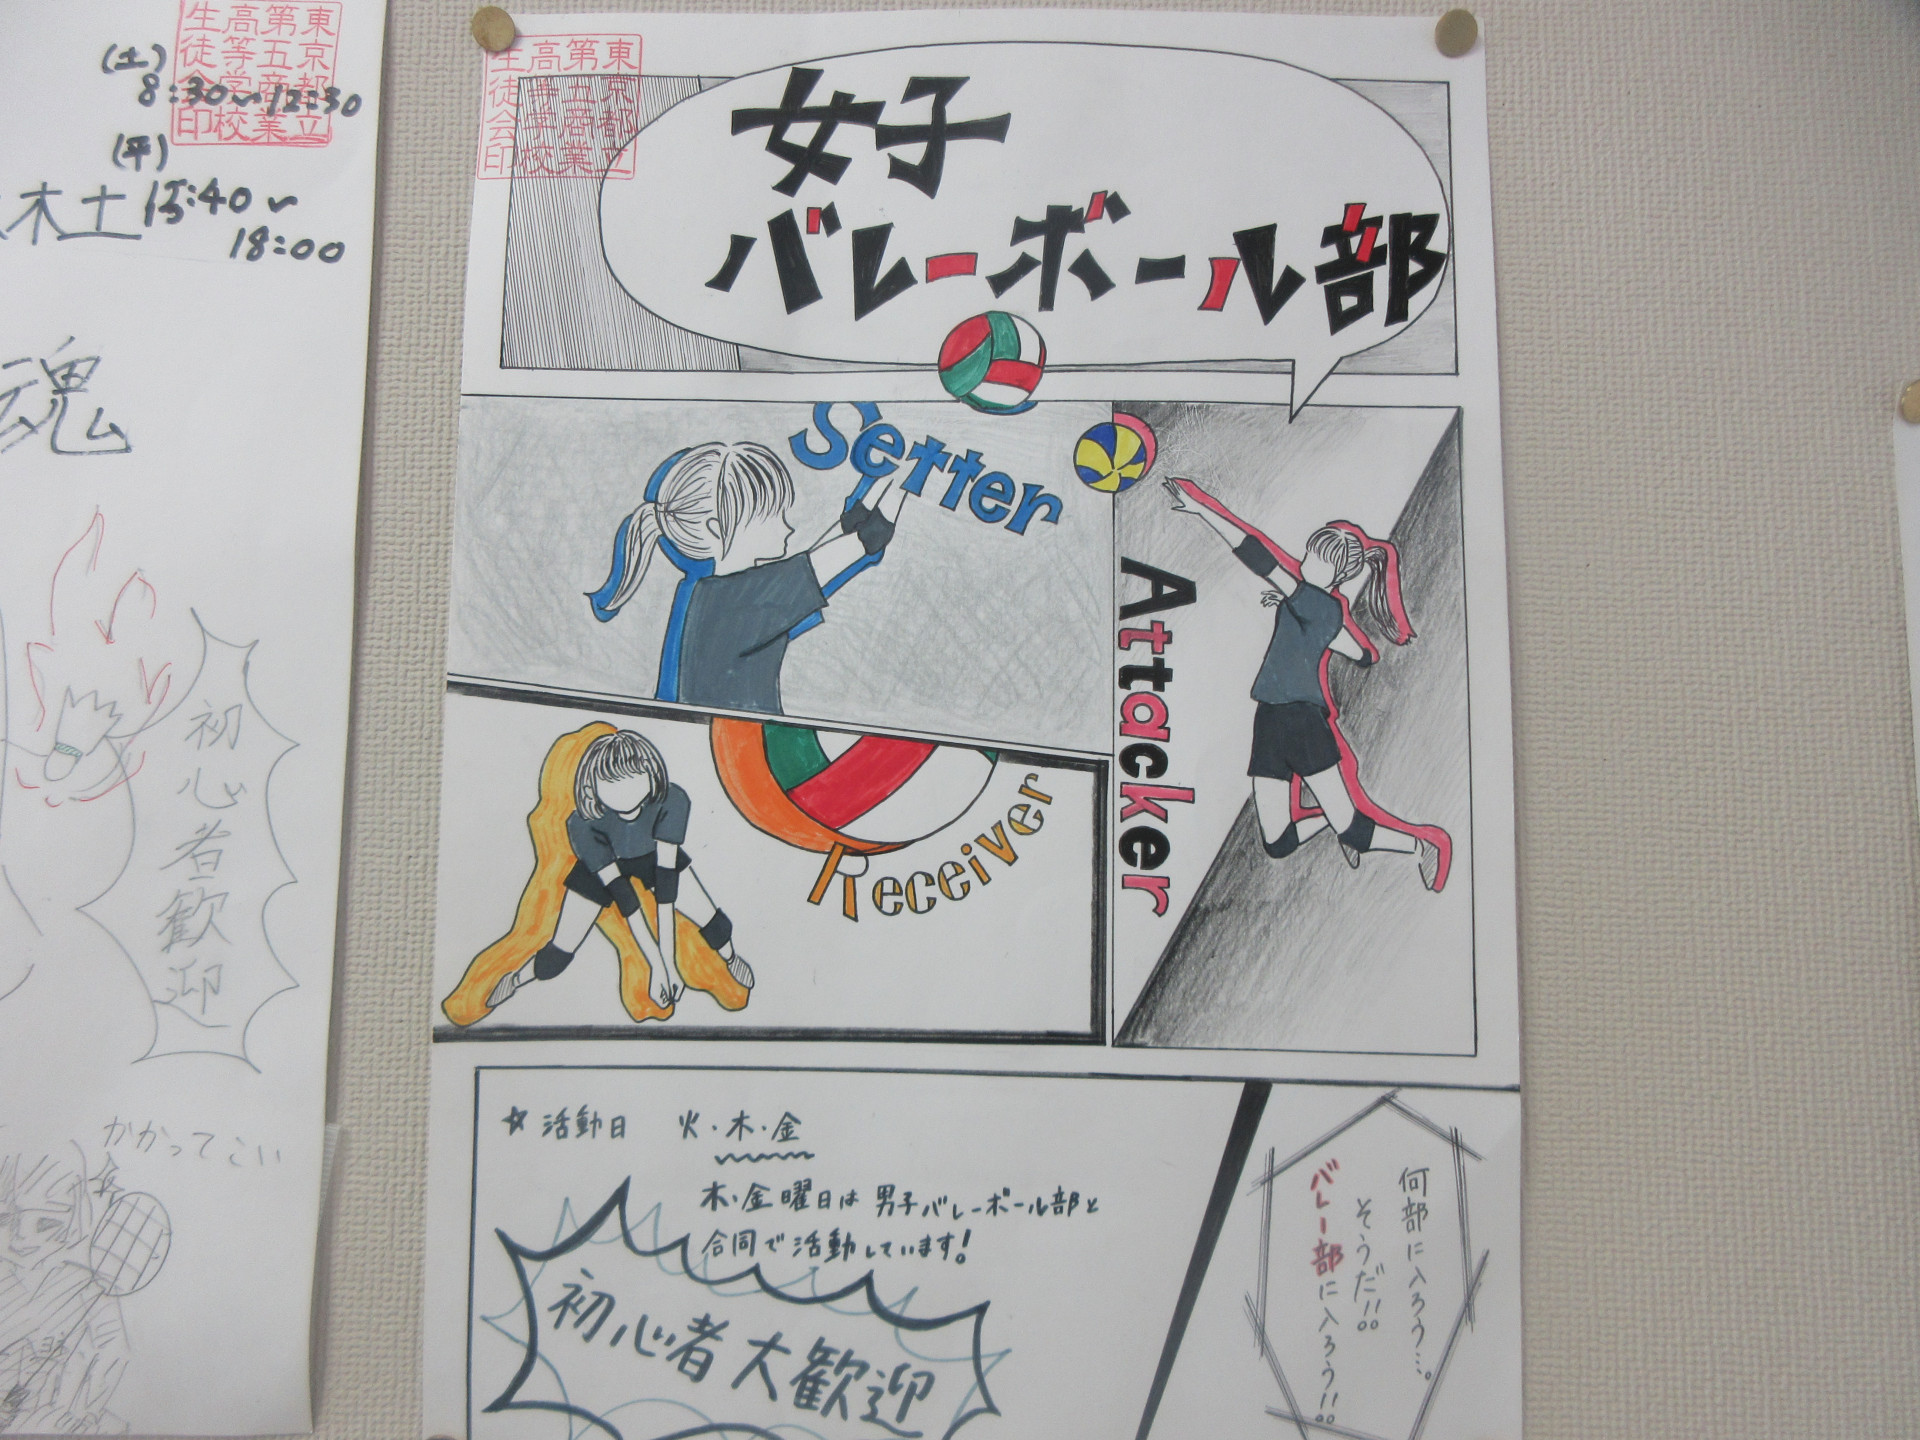 (土)
8:30〜12:30
(平)
木土 15:40〜
18:00
魂
初心者歓迎
かかってこい
東京都立
第五商業
高等学校
生徒会印
東京都立
第五商業
高等学校
生徒会印
女子
バレーボール部
Setter
Attacker
Receiver
☆活動日 火・木・金
木・金曜日は男子バレーボール部と
合同で活動しています!
初心者大歓迎
何部に入ろう…。
そうだ!!
バレー部に入ろう!!